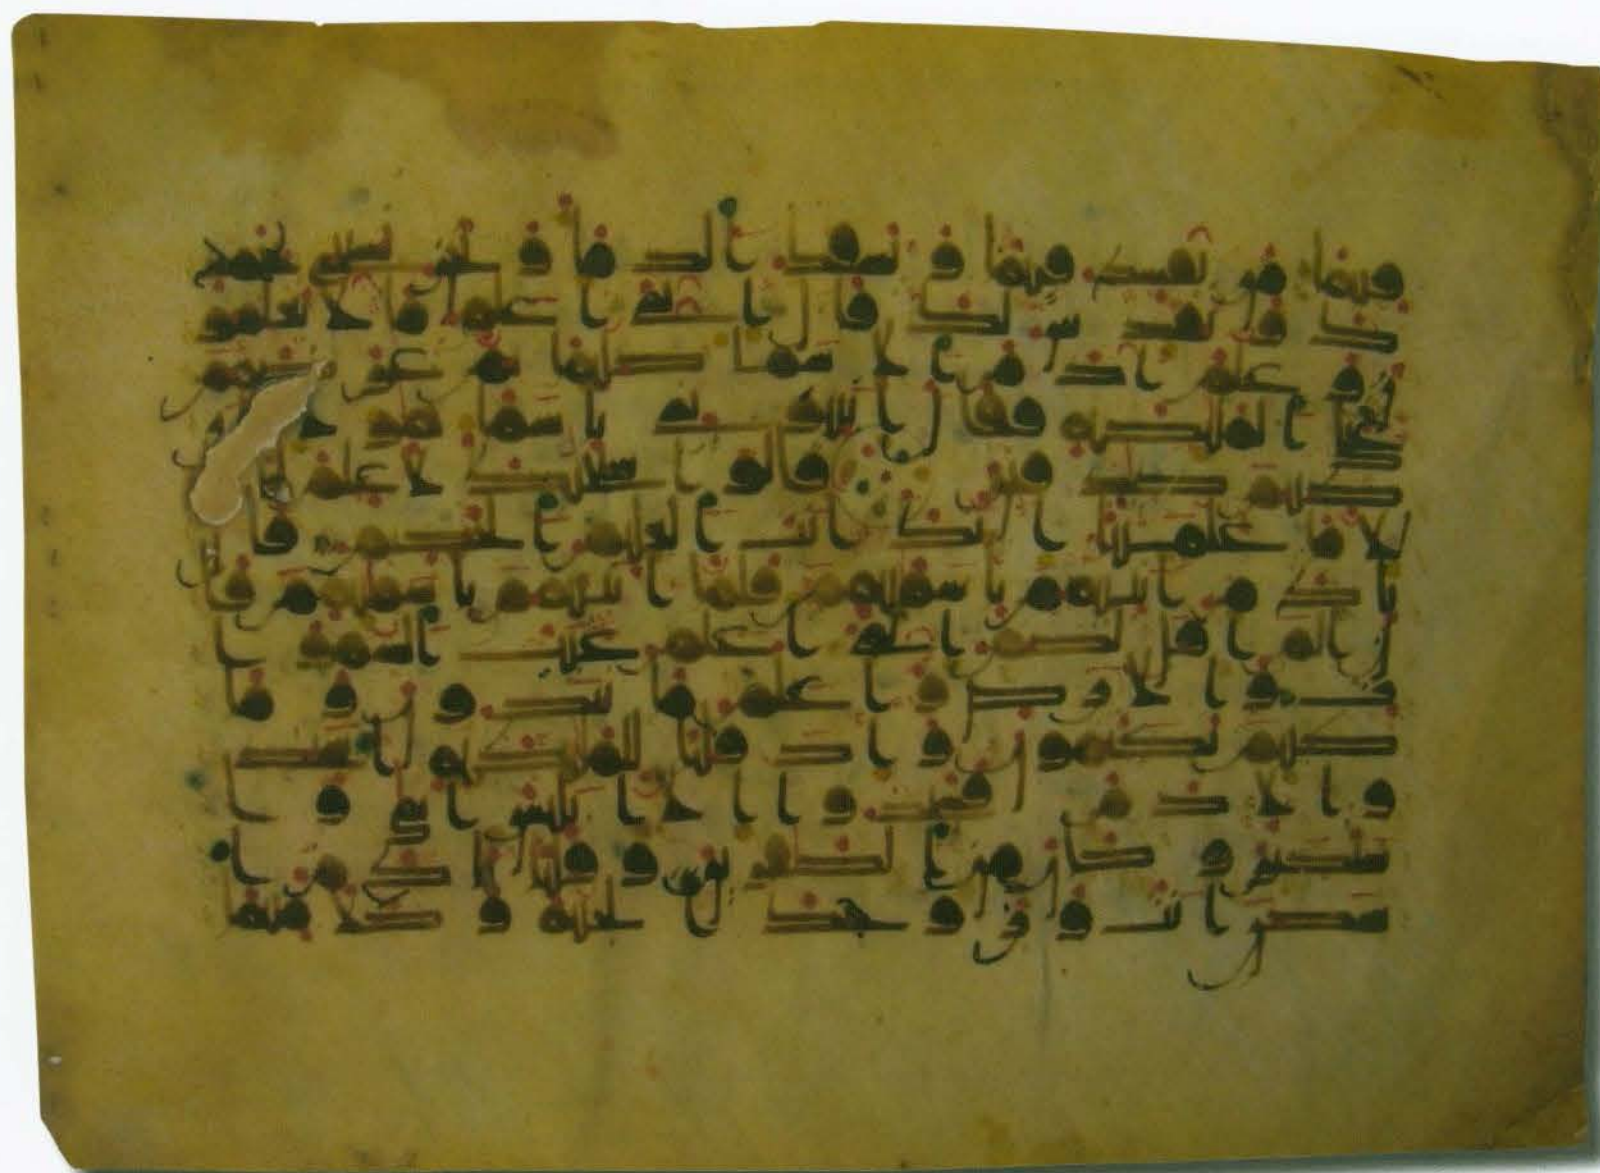 فيها من يفسد فيها و يسفك الدما و نحن نسبح بحمد
ك و نقدس لك قال اني اعلم ما لا تعلمو
ن و علم ادم الاسما كلها ثم عرضهم
على الملئكة فقال انبوني باسما هولا
كنتم صدقين قالوا سبحنك لا علم لنا
الا ما علمتنا انك انت العليم الحكيم قا
ل يادم انبيهم باسمايهم فلما انباهم باسمايهم قا
ل الم اقل لكم اني اعلم غيب السموت و ا
لارض و اعلم ما تبدون و ما
كنتم تكتمون و اذ قلنا للملئكة اسجد
وا لادم فسجدوا الا ابليس ابى و ا
ستكبر و كان من الكفرين و قلنا يادم ا
سكن انت و زوجك الجنة و كلا منها